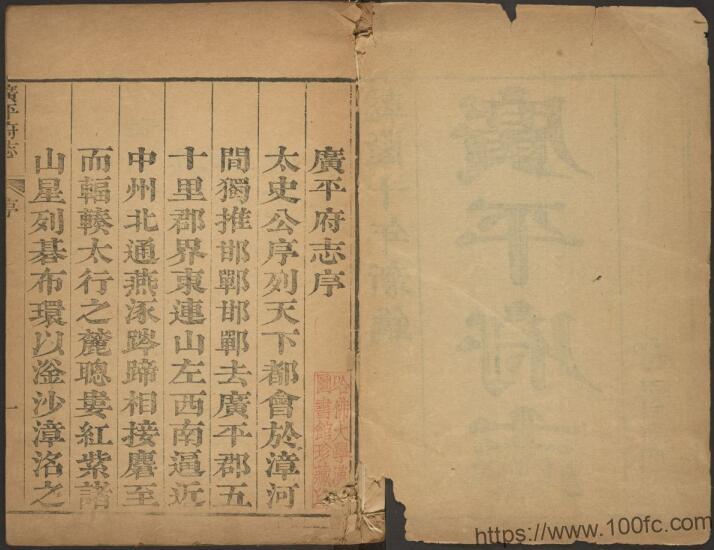 廣平府志序
太史公序列天下都會於漳河
間獨推邯鄲邯鄲去廣平郡五
十里郡界東連山左西南逼近
中州北通燕涿蹄相接麏至
而輻輳太行之麓聰婁紅紫諸
山星列碁布環以滏沙漳洺之
廣平府志 序 一
哈佛大學漢
圖書館珍藏印
https://www.100fc.com